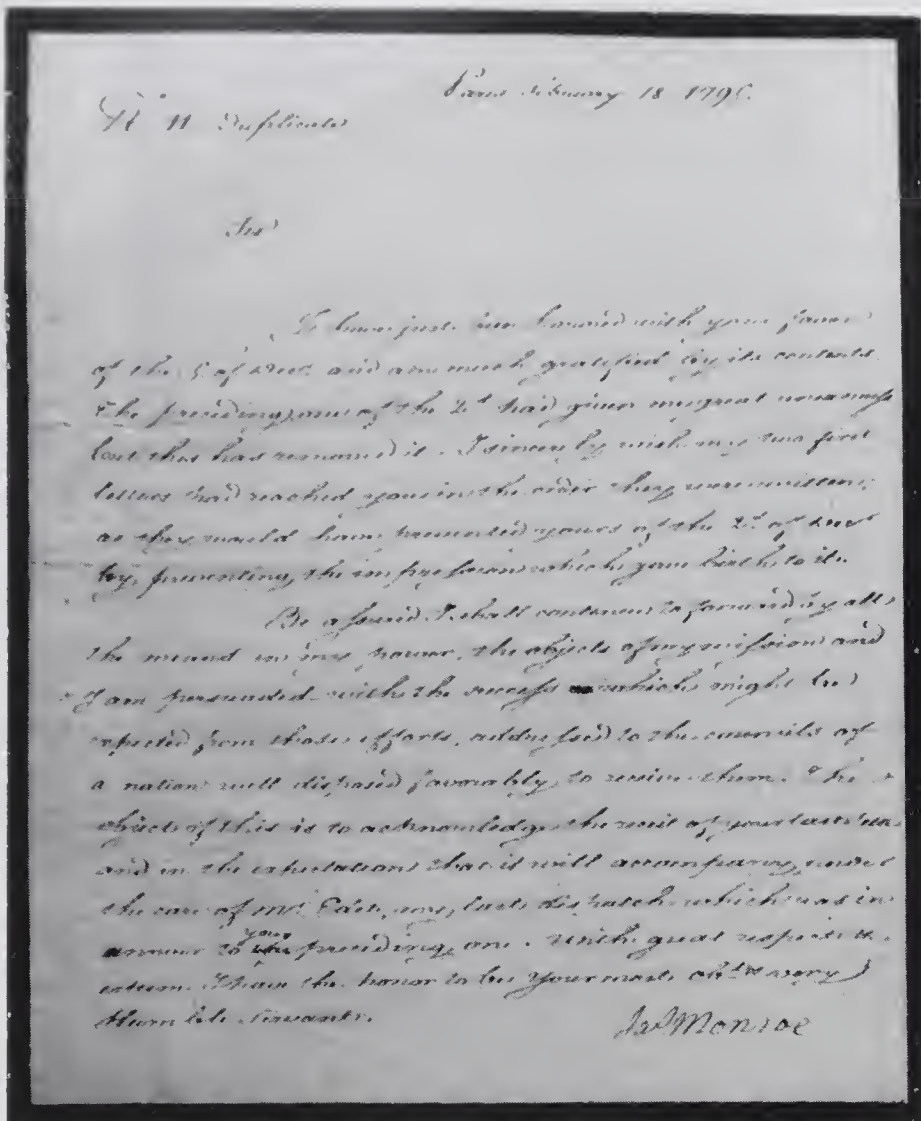 Paris February 18 1795.
No 11 Duplicate
Sir
I have just been honored with your favor
of the 5 of Decr and am much gratified by its contents.
The preceding one of the 2d had given me great uneasiness
but this has removed it. I sincerely wish my two first
letters had reached you in the order they were written,
as they would have prevented yours of the 2d of Decr
by preventing the impressions which gave birth to it.
Be assured I shall continue to forward by all
the means in my power, the objects of my mission and
I am persuaded with the success which might be
expected from those efforts, addressed to the councils of
a nation well disposed favorably to receive them. The
object of this is to acknowledge the receit of your last
and in the expectation that it will accompany, under
the care of Mr. Edet, my last dispatch which was in
answer to your preceding one. With great respect &
esteem I have the honor to be Your most obt. & very
Humble Servant.
Jas Monroe